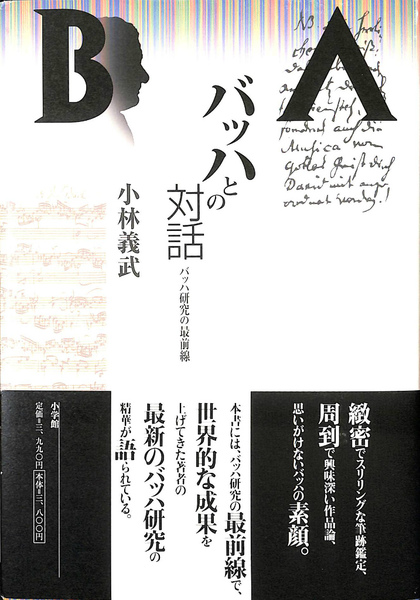 B
Λ
バッハとの
対話
バッハ研究の最前線
小林義武
緻密でスリリングな筆跡鑑定、
周到で興味深い作品論、
思いがけないバッハの素顔。
本書には、バッハ研究の最前線で、
世界的な成果を
上げてきた著者の
最新のバッハ研究の
精華が語られている。
小学館
定価=三、九九〇円 本体=三、八〇〇円